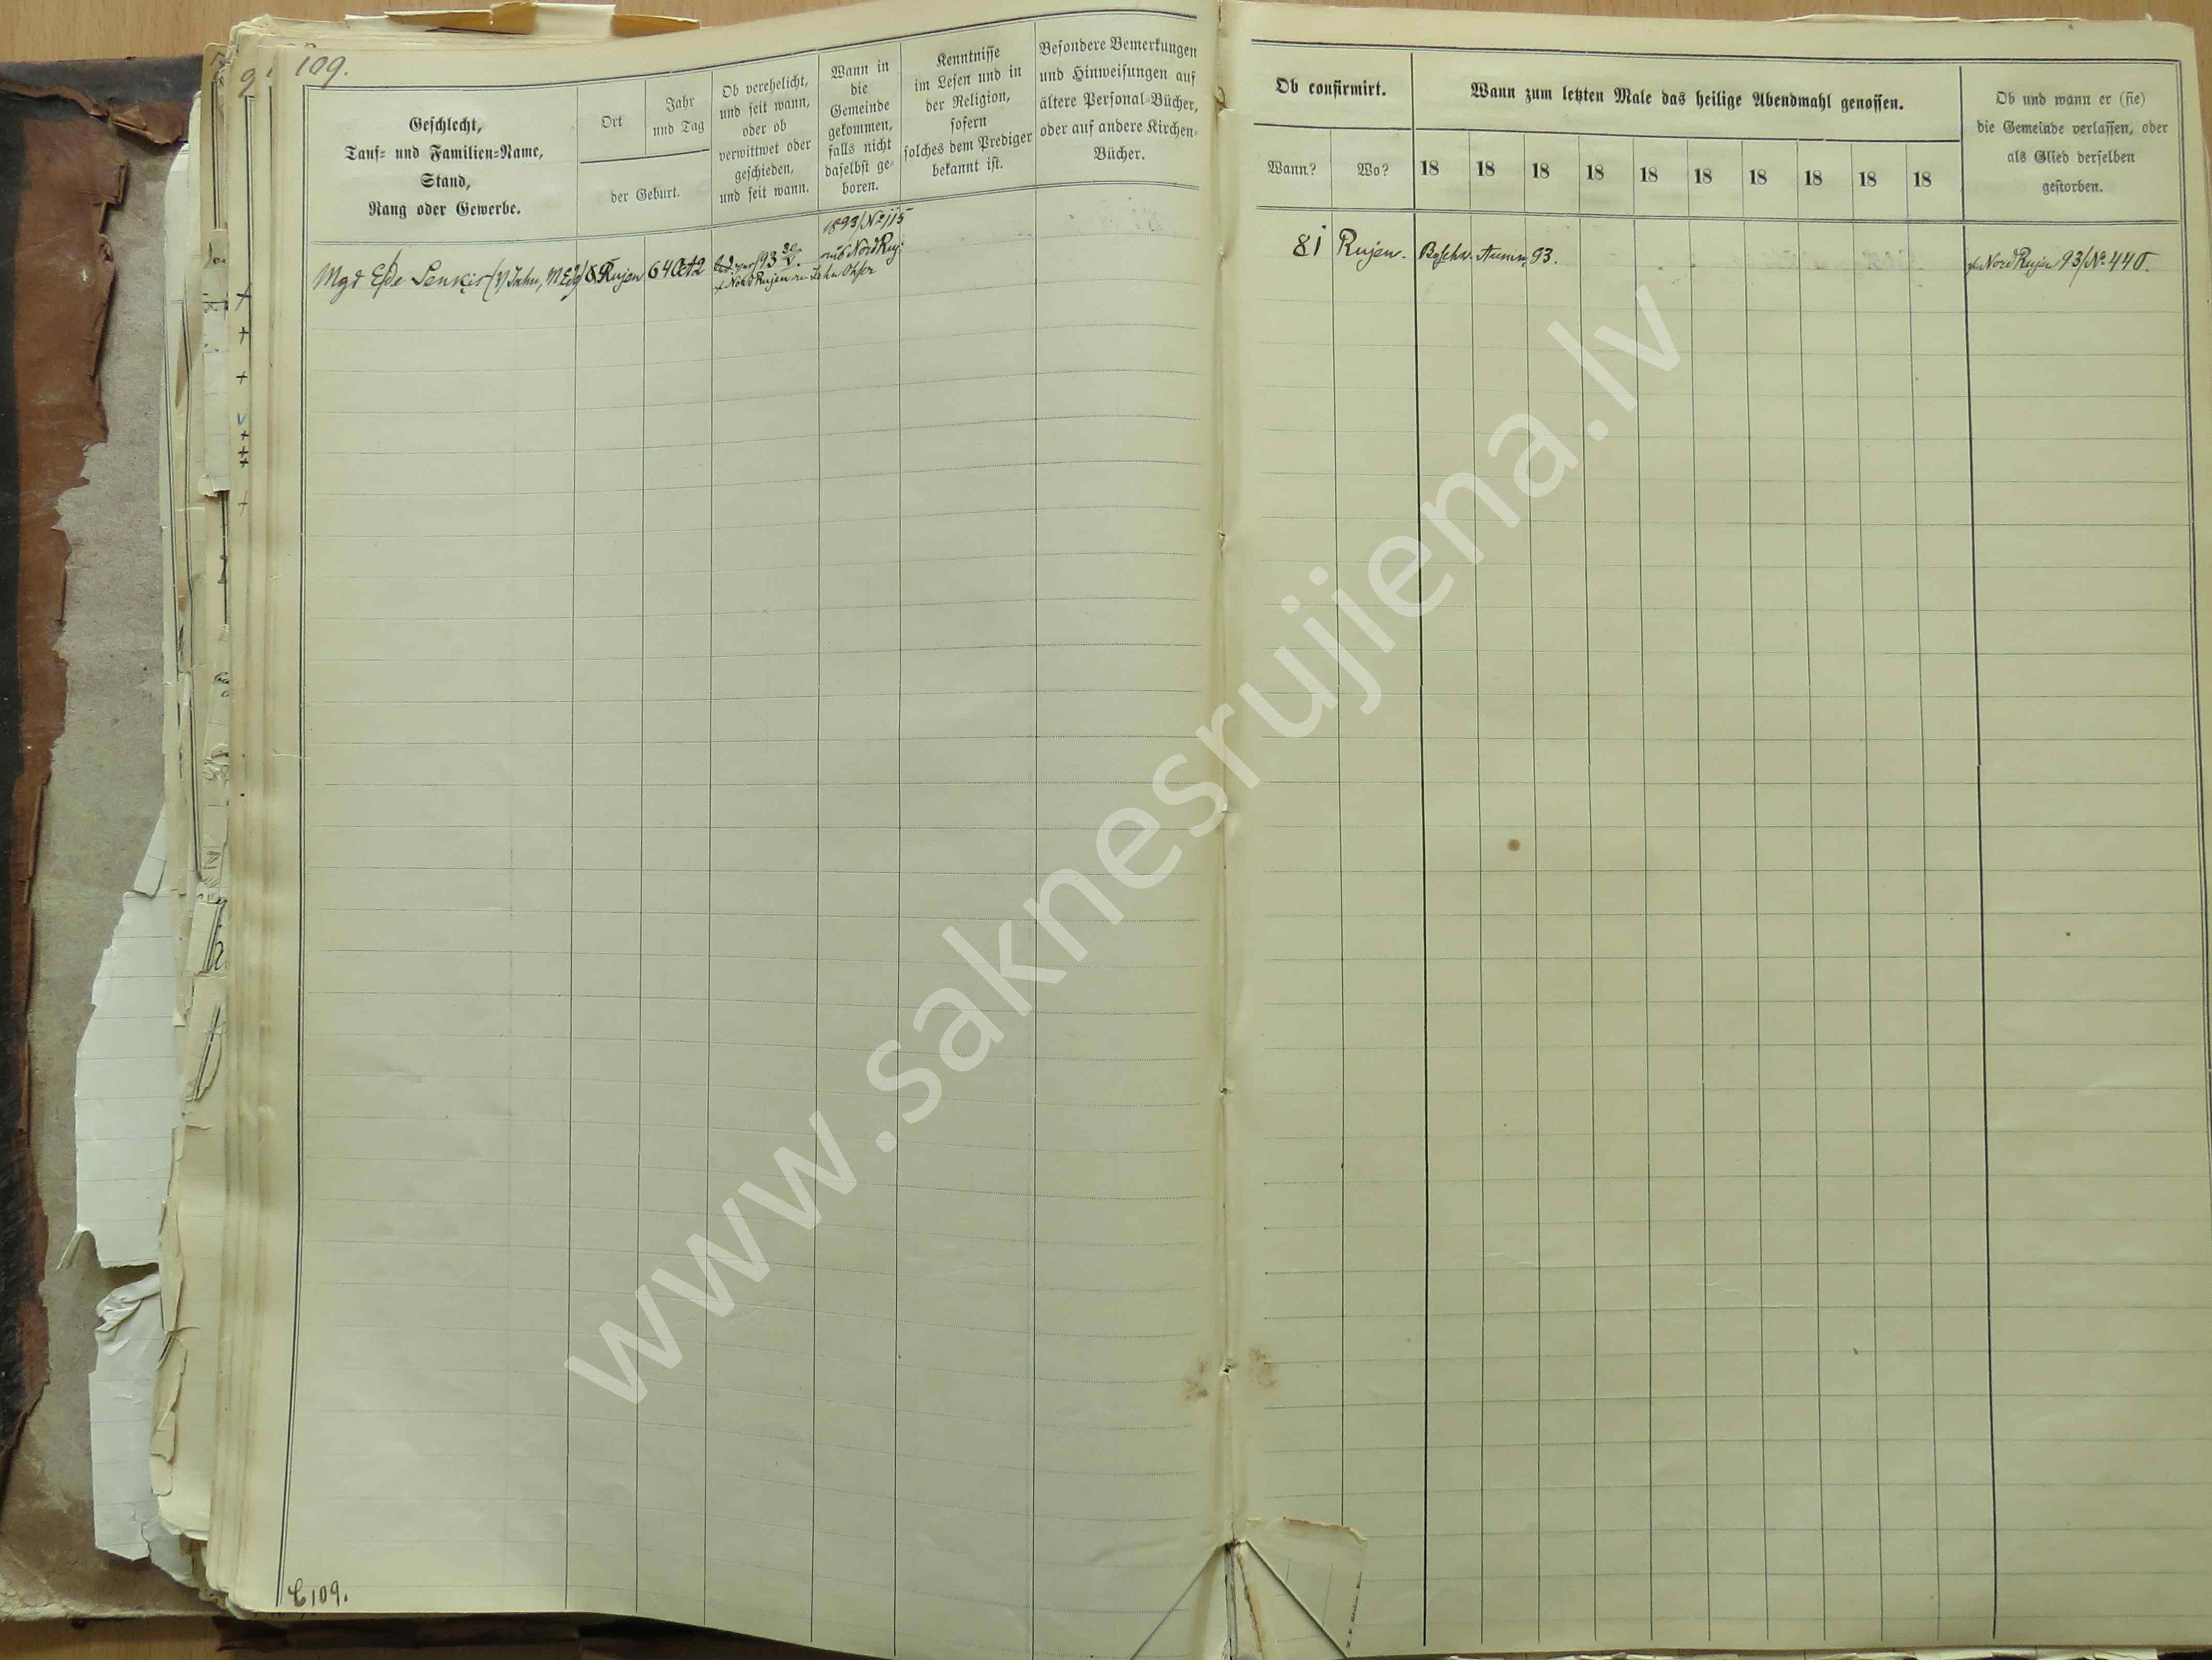 109.
Geschlecht,
Tauf= und Familien=Name,
Stand,
Rang oder Gewerbe.
Ort
Jahr
und Tag
der Geburt.
Ob verehelicht,
und seit wann,
oder ob
verwittwet oder
geschieden,
und seit wann.
Wann in
die
Gemeinde
gekommen,
falls nicht
daselbst ge=
boren.
Kenntnisse
im Lesen und in
der Religion,
sofern
solches dem Prediger
bekannt ist.
Besondere Bemerkungen
und Hinweisungen auf
ältere Personal=Bücher,
oder auf andere Kirchen=
Bücher.
1893/№115
Nord Ruj.
Mgd Ede Lenkis Jahn, Rujen 64 Oct 2 93
Nord Rujen
Ob confirmirt.
Wann?
Wo?
Wann zum letzten Male das heilige Abendmahl genossen.
18 18 18 18 18 18 18 18 18 18
Ob und wann er (sie)
die Gemeinde verlassen, oder
als Glied derselben
gestorben.
81 Rujen. 93. Nord Rujen 93/№ 440.
109.
www.saknesrujiena.lv